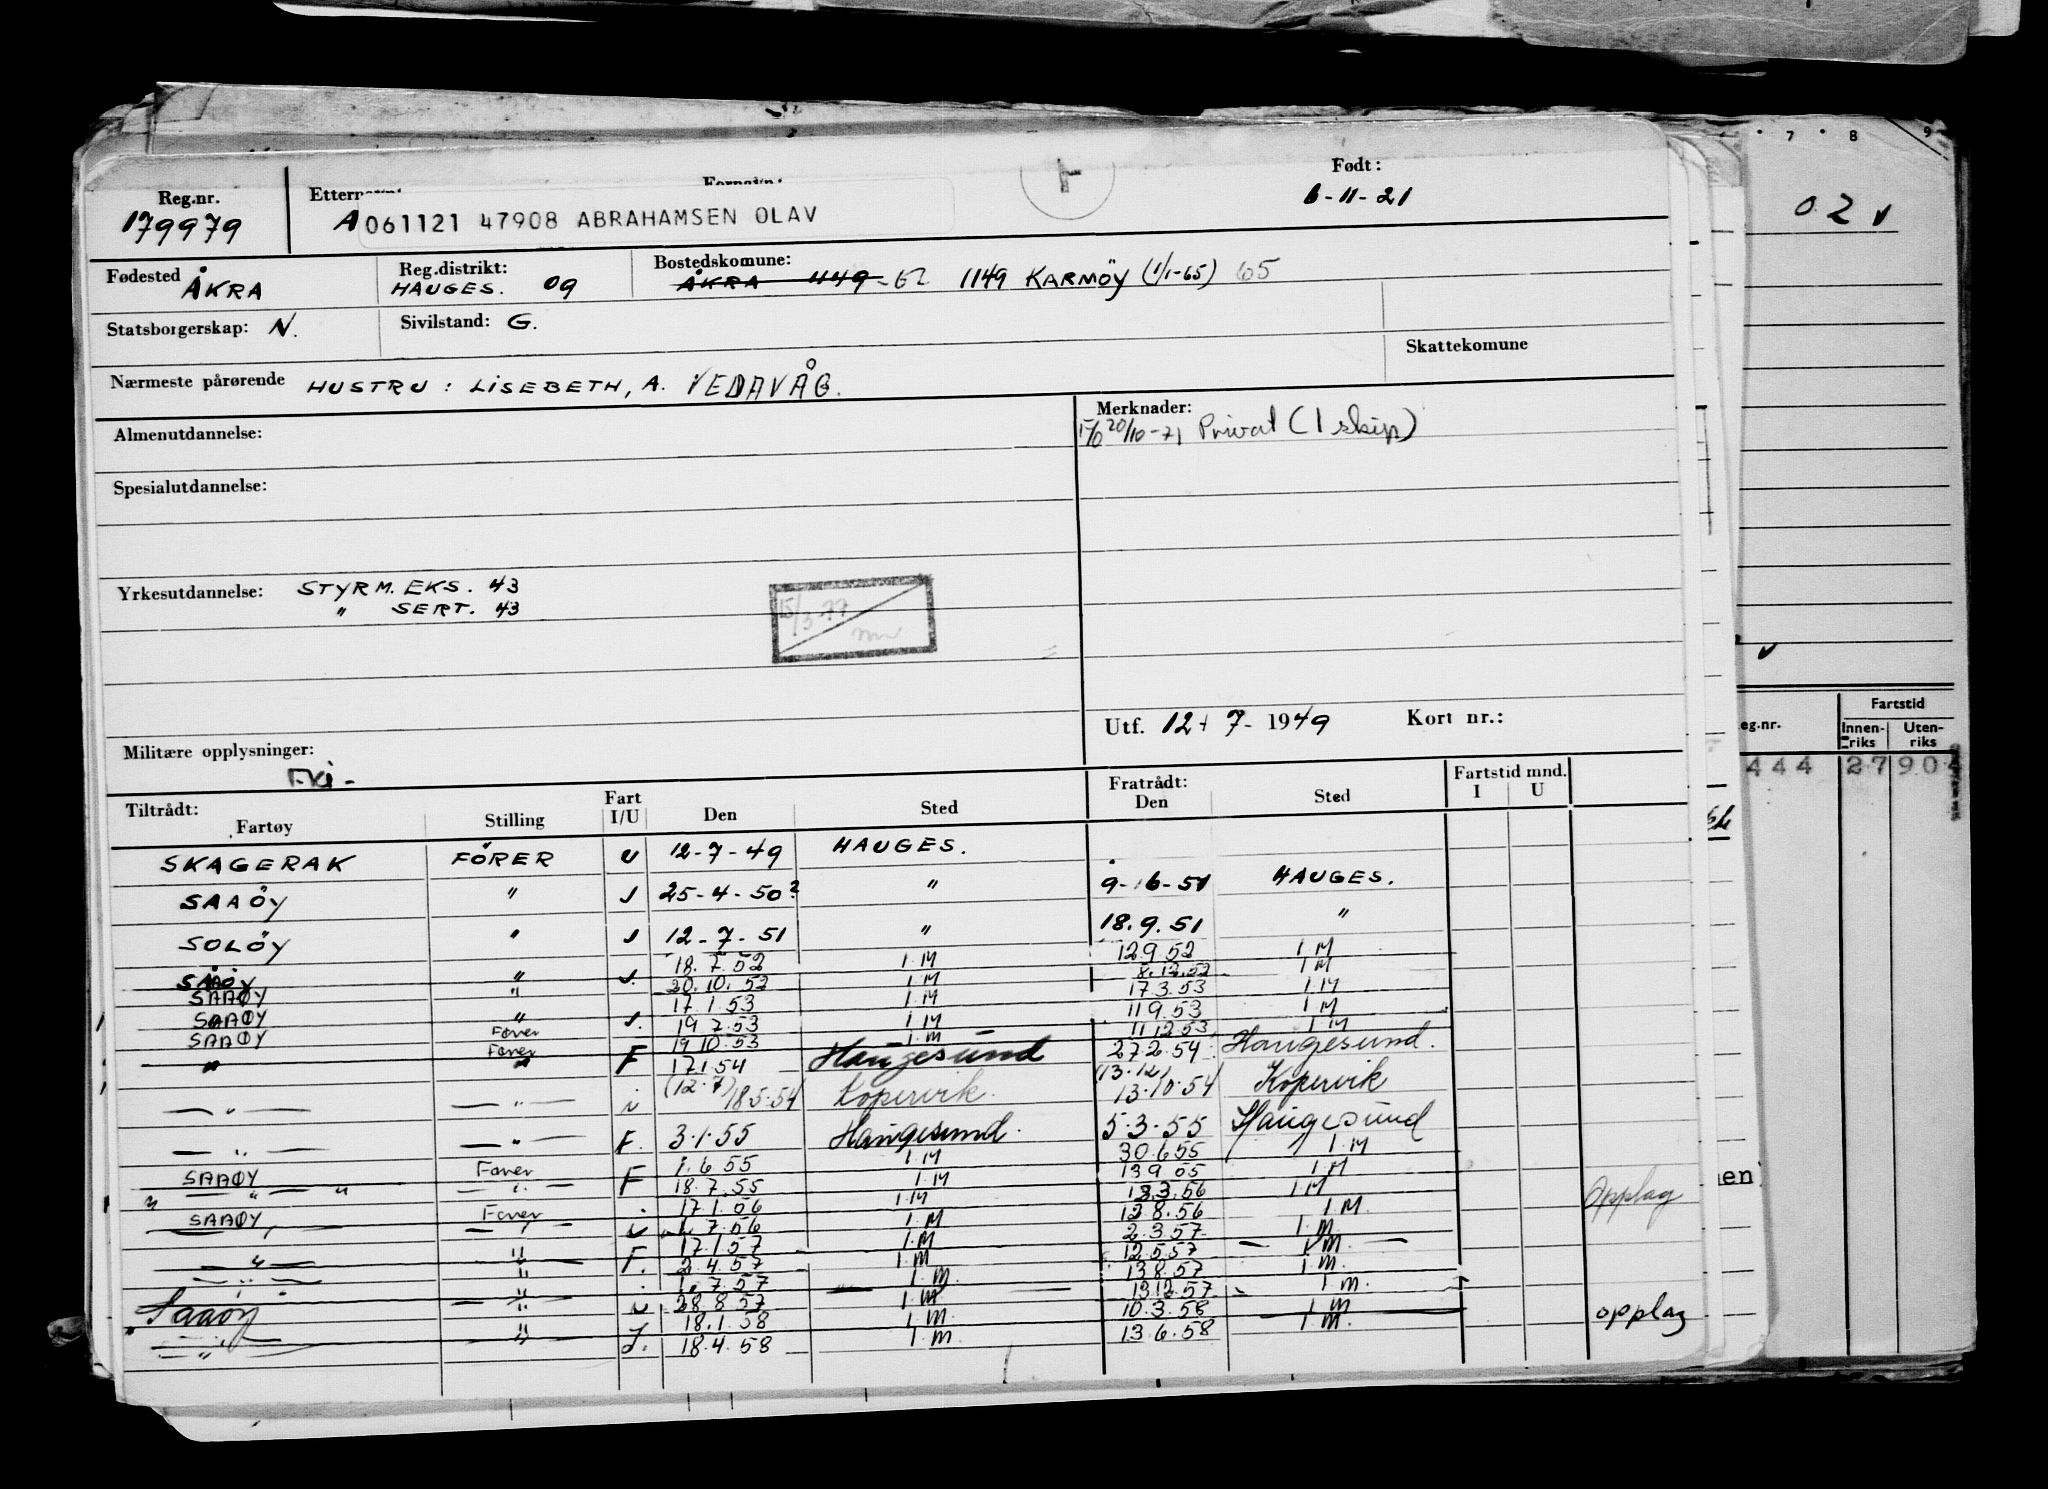 7 8 9
Reg.nr.
179979
Født:
6-11-21
A 061121 47908 ABRAHAMSEN OLAV
02
Fødested ÅKRA
Reg.distrikt: HAUGES. 09
Bostedskomune: ÅKRA 1149 - 62 1149 KARMÖY (1/1-65) 65
Statsborgerskap: N.
Sivilstand: G.
Skattekomune
Nærmeste pårørende HUSTRU: LISEBETH, A. VEDAVÅG.
Almenutdannelse:
Merknader:
20/10-71 Privat (1 skip)
Spesialutdannelse:
Yrkesutdannelse: STYRM. EKS. 43
" SERT. 43
Utf. 12 - 7 - 1949 Kort nr.:
Militære opplysninger:
eg.nr. Fartstid
Innen-riks Uten-riks
444 27 904
Tiltrådt: Fratrådt: Fartstid mnd.
Fartøy Stilling Fart I/U Den Sted Den Sted I U
SKAGERAK FÖRER U 12-7-49 HAUGES.
SAAÖY " 25-4-50? " 9-6-51 HAUGES.
SOLÖY " 12-7-51 " 18.9.51 "
SAAÖY " 18.7.52 1.M 12.9.52 1.M
SAAØY " 30.10.52 1.M 8.12.52 1.M
SAAØY " 17.1.53 1.M 17.3.53 1.M
SAAØY Fører 19.7.53 1.M 11.9.53 1.M
Fører 19.10.53 1.M 11.12.53 1.M
" " F 17.1.54 Haugesund 27.2.54 Haugesund.
" " (12.7) 18.5.54 Kopervik. (13.12) 13.10.54 Kopervik
" " F. 3.1.55 Haugesund. 5.3.55 Haugesund
SAAØY Fører F 1.6.55 1.M 30.6.55 1.M
" " 18.7.55 1.M 13.9.55 1.M
SAAØY Fører 17.1.56 1.M 13.3.56 1.M opplag
" 7.56 1.M 12.8.56 1.M
" " F. 17.1.57 1.M 2.3.57 1.M
" " 2.4.57 1.M 12.5.57 1.M
" 1.7.57 1.M. 13.8.57 1.M.
Saaöy " 28.8.57 1.M 13.12.57 1.M.
" 18.1.58 1.M 10.3.58 1.M opplag
" " 18.4.58 1.M. 13.6.58 1.M.